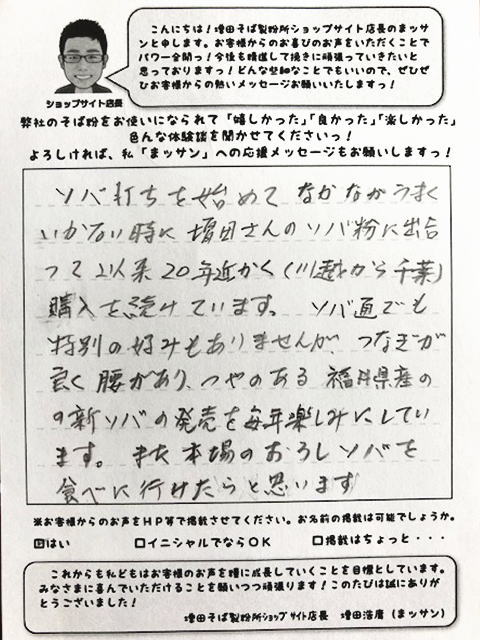 こんにちは！増田そば製粉所ショップサイト店長のまッサ
ンと申します。お客様からのお喜びのお声をいただくことで
パワー全開っ！今後も精進して挽きに頑張っていきたいと
思っておりますっ！どんな些細なことでもいいので、ぜひぜ
ひお客様からの熱いメッセージお願いいたしますっ！
ショップサイト店長
弊社のそば粉をお使いになられて「嬉しかった」「良かった」「楽しかった」
色んな体験談を聞かせてくださいっ！
よろしければ、私「まッサン」への応援メッセージもお願いしますっ！
ソバ打ちを始めて なかなかうまく
いかない時に 増田さんのソバ粉に出合
って以来 20年近かく(川越から千葉)
購入を続けています。 ソバ通でも
特別の好みもありませんが、つなぎが
良く 腰があり、つやのある 福井県産の
の新ソバの発売を毎年楽しみにしてい
ます。 また本場のおろしソバを
食べに行けたらと思います
※お客様からのお声をHP等で掲載させてください。お名前の掲載は可能でしょうか。
はい □イニシャルでならOK □掲載はちょっと・・・
これからも私どもはお客様のお声を糧に成長していくことを目標としています。
みなさまに喜んでいただけることを願いつつ頑張ります！このたびは誠にありが
とうございました！
増田そば製粉所ショップサイト店長 増田浩庸（まッサン）